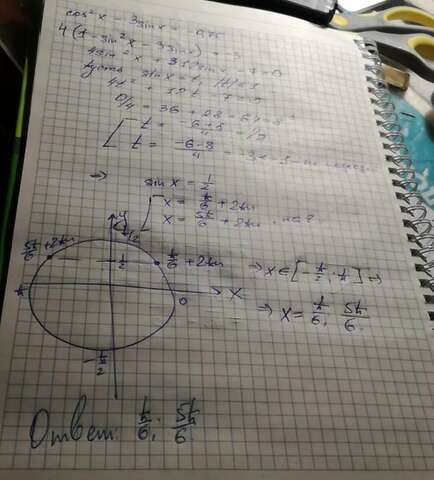 cos²x - 3sinx = -0,75
4(1-sin²x-3sinx) = -3
4sin²x + 12sinx - 7 = 0
Пусть sinx = t, |t| ≤ 1
4t² + 12t - 7 = 0
D/4 = 36 + 28 = 64 = 8²
t = (-6+8)/4 = 1/2
t = (-6-8)/4 =
=> sinx = 1/2
x = π/6 + 2πn
x = 5π/6 + 2πn, n∈Z
y
5π/6 + 2πn
1/2
π/6 + 2πn
=> x∈[-π/2; π] =>
π
0
x
=> x = π/6; 5π/6
-π/2
Ответ: π/6; 5π/6